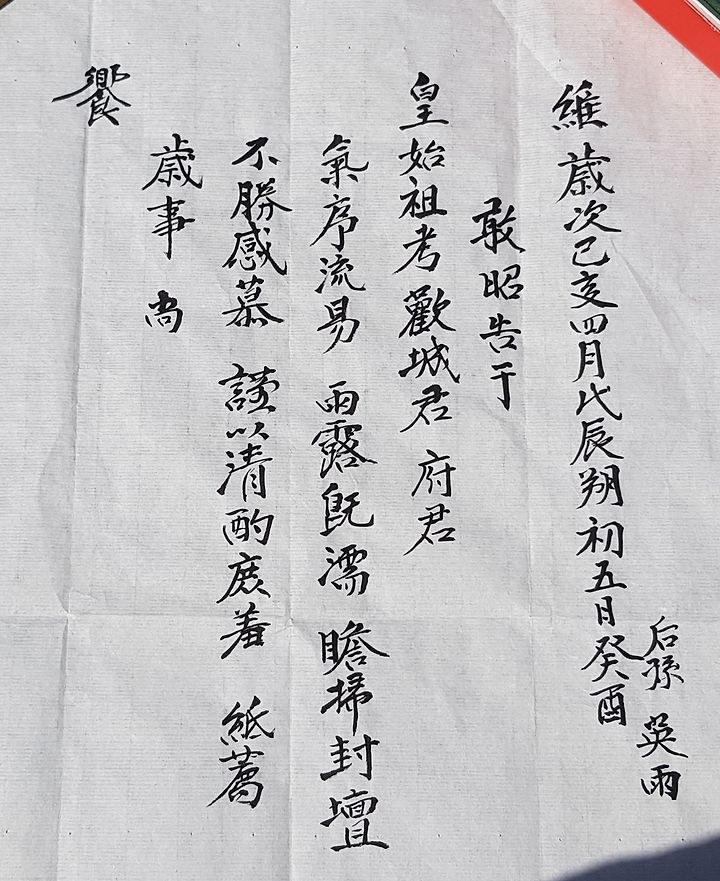 維 歲次己亥四月戊辰朔初五日癸酉
后孫 英雨
敢昭告于
皇始祖考 歡城君 府君
氣序流易 雨露旣濡 瞻掃封壇
不勝感慕 謹以清酌庶羞 紙薦
歲事 尙
饗